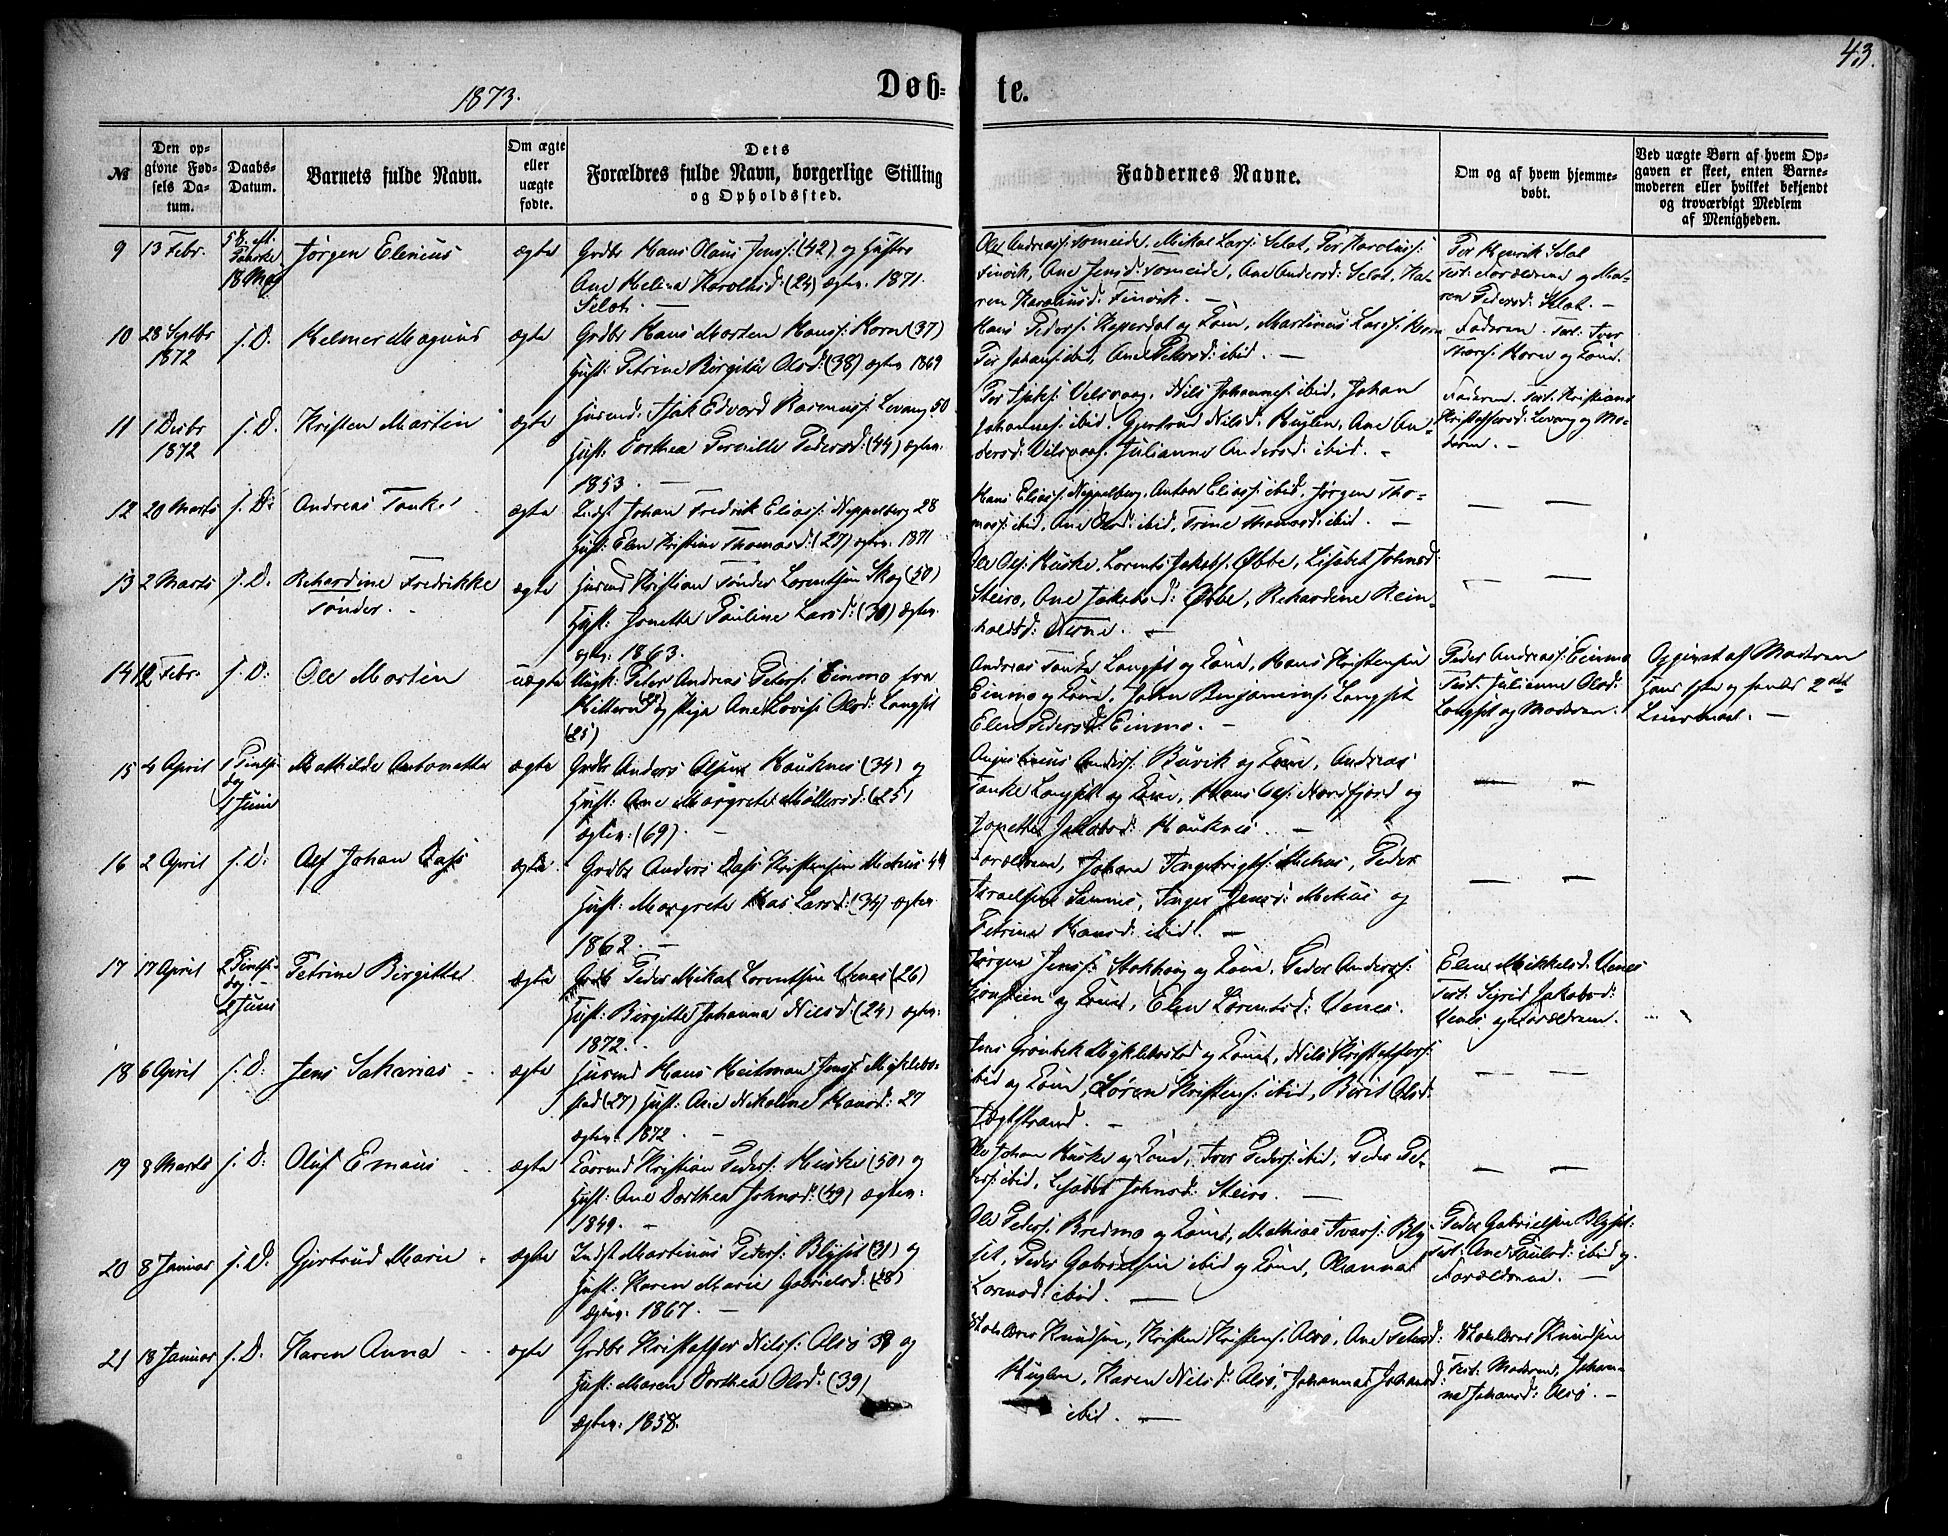 43.
1873.
Døb- te.
№
Den op-
givne Fød-
sels Da-
tum.
Daabs-
Datum.
Barnets fulde Navn.
Om ægte
eller
uægte
fødte.
Dets
Forældres fulde Navn, borgerlige Stilling
og Opholdssted.
Faddernes Navne.
Om og af hvem hjemme-
døbt.
Ved uægte Børn af hvem Op-
gaven er skeet, enten Barne-
moderen eller hvilket bekjendt
og troværdigt Medlem
af Menigheden.
9 13 Febr. 18 Maj Jørgen Elenius ægte Grdbr Hans Olaus Jenss: (42) og Hustru
Ane Helena Karolusd: (24) ægtev. 1871.
Selot.
Ole Andreass: Tomeide, Mikal Larss: Selot, Per Karoluss:
Finvik, Ane Jensd: Tomeide, Ane Andersd: Selot, Ka-
ren Karolusd: Finvik. —
Per Henrik Selot
Test: Forældrene og Ma-
ren Pedersd: Selot. —
10 28 Septbr
1872 s. D. Helmer Magnus ægte Grdbr Hans Morten Hanss: Horn (37)
Hust: Petrine Birgitte Olsd: (38) ægtev. 1869
Hans Peders: og Kone, Martinus Larss: Horn
Per Johans: ibid, Ane Pedersd: ibid. —
Faderen. Test. Iver
Horn og Kone.
11 1 Decbr
1872 s. D. Kristen Martin ægte Husmd: Isak Edvard Rasmuss: Levang 50
Hust: Dorthea Pernille Pedersd: (44) ægtev.
1853. —
Per Isaks: Velsvaag, Nils Johanness: ibid, Johan
Johanness: ibid, Gjertrud Nilsd: Huglen, Ane An-
dersd: Velsvaag, Julianne Andersd: ibid. —
Faderen. Test: Kristiane
Kristoffersd: Levang og Mo-
deren. —
12 20 Marts s. D: Andreas Tanke ægte Indst Johan Fredrik Eliass: Neppelberg 28
Hust: Elen Kristine Thomasd: (27) ægtev. 1871
Hans Eliass: Neppelberg, Anton Eliass: ibid, Jørgen Tho-
mass: ibid, Ane Olsd: ibid, Trine Thomasd: ibid. —
— —
13 2 Marts s. D. Rikardine Fredrikke
Tønder. ægte Husmd Kristian Tønder Lorentsen Skog (50)
Hust: Jonetta Pauline Larsd: (30) ægtev.
1863.
Ole Ols: Huske, Lorents Jakobs: Øbbe, Lisabet Johnsd:
Steiro, Ane Jakobsd: Øbbe, Rikardine Rein-
holdtd: Nerne. —
— —
14 12 Febr. s. D: Ole Martin uægte Ungk: Peter Andreas Peters: Einmo fra
og Pige Ane Lovise Olsd: Langset
(25)
Andreas Tanke Langset og Kone, Hans Kristensen
Einmo og Kone, John Benjamins: Langset
Elen Pedersd: Einmo. —
Peder Andreass: Einmo
Test. Julianne Olsd:
Langset og Moderen.
Opgivet af Moderen
Hans 1ste og hendes 2det
Leiermaal. —
15 4 April 1 Pintse
dag
1 Juni Mathilde Antonette ægte Grdbr Anders Olsen Hauknes (34) og
Hust: Ane Margrete Møllersd: (25)
ægtev: (69). —
Anders: Buvik og Kone, Andreas
Tanke Langset og Kone, Hans Ols: og
Jonette Jakobsd: Hauknes. —
— —
16 2 April s. D: Alf Johan Dass ægte Grdbr Anders Dass Kristensen Mehus 44
Hust: Margrete Larsd: (34) ægtev.
1862. —
Forældrene, Johan Ingebrigts: Mehus, Peder
Israelsen Sannes, Inger Jensd: Mehus og
Petrine Hansd: ibid. —
— —
17 17 April 2 Pintse-
dag. —
2 Juni Petrine Birgitte ægte Grdbr Peder Mikal Lorentsen Venes (26)
Hust: Birgitte Johanna Nilsd: (24) ægtev.
1872. —
Jørgen Jenss: Stokkøy og Kone, Peder Anderss:
og Kone, Elen Lorentsd: Venes.
Elen Mikkelsd: Venes
Test: Sigrid Jakobsd:
Venes og Forældrene.
18 6 April s. D: Jens Sakarias ægte Husmd Hans Heitman Jenss: Myklebo-
stad (27) Hust: Ane Nikoline Hansd: 27
ægtev: 1872. —
Jens Grønbek Myklebostad og Kone, Nils Kristoffers:
ibid og Kone, Søren Kristens: ibid, Berit Olsd:
— —
19 8 Marts s. D: Oluf Emaus ægte Kristian Peders: Huske (50) og
Hust: Ane Dorthea Johnsd: (49) ægtev:
1849. —
Johan Huske og Kone, Iver Peders: ibid, Peder Pe-
ders: ibid, Lisabet Johnsd: Steiro. —
— —
20 8 Januar s. D. Gjertrud Marie ægte Indst Martinus Peders: Blyset (31) og
Hust: Karen Marie Gabrielsd: (28)
ægtev. 1867. —
Ole Peders: Bredmo og Kone, Mathias Ivars: Bly-
set, Peder Gabrielsen ibid og Kone, Olianna
Larsd: ibid. —
Peder Gabrielsen Blyset:
Test: Ane Paulsd: ibid og
Forældrene. —
21 18 Januar s. D. Karen Anna ægte Grdbr Kristoffer Nilss: Alsø 38 og
Hust: Maren Dorthea Olsd: (39)
ægtev: 1858.
Knudsen, Kristen Kristens: Alsø, Ane Pedersd:
Huglen, Karen Nilsd: Alsø, Johanna Johansd:
ibid. —
Knudsen
Test: Moderen, Johan-
na Johansd: Alsø. —